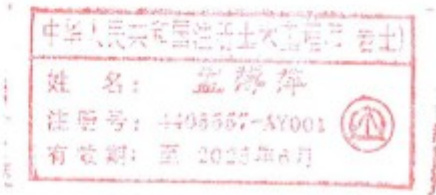 中华人民共和国注册土木工程师(岩土)
姓 名:
注册号: 4405567-AY001
有效期: 至 2025年6月